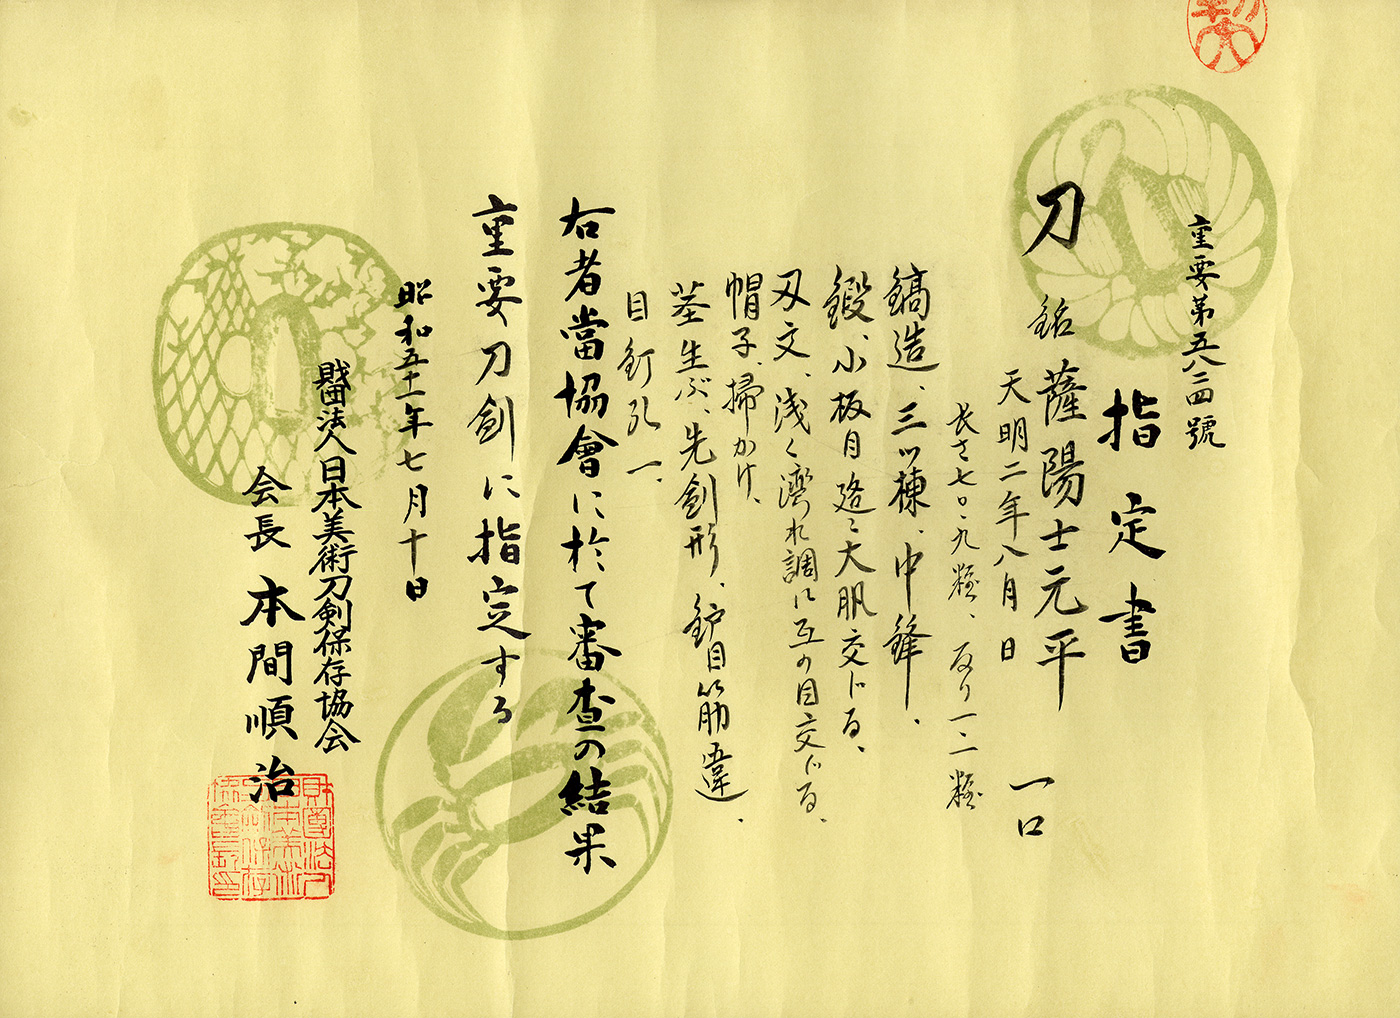 重要第五八二四號
指定書
刀 銘 薩陽士元平 一口
天明二年八月日
長さ七〇・九糎、反り一・二糎
鎬造、三ツ棟、中鋒、
鍛、小板目処々大肌交じる、
刃文、浅く湾れ調に互の目交じる、
帽子、掃かけ、
茎生ぶ、先剣形、鈩目筋違、
目釘孔一、
右者當協會に於て審査の結果
重要刀剣に指定する
昭和五十一年七月十日
財団法人日本美術刀剣保存協会
会長 本間順治